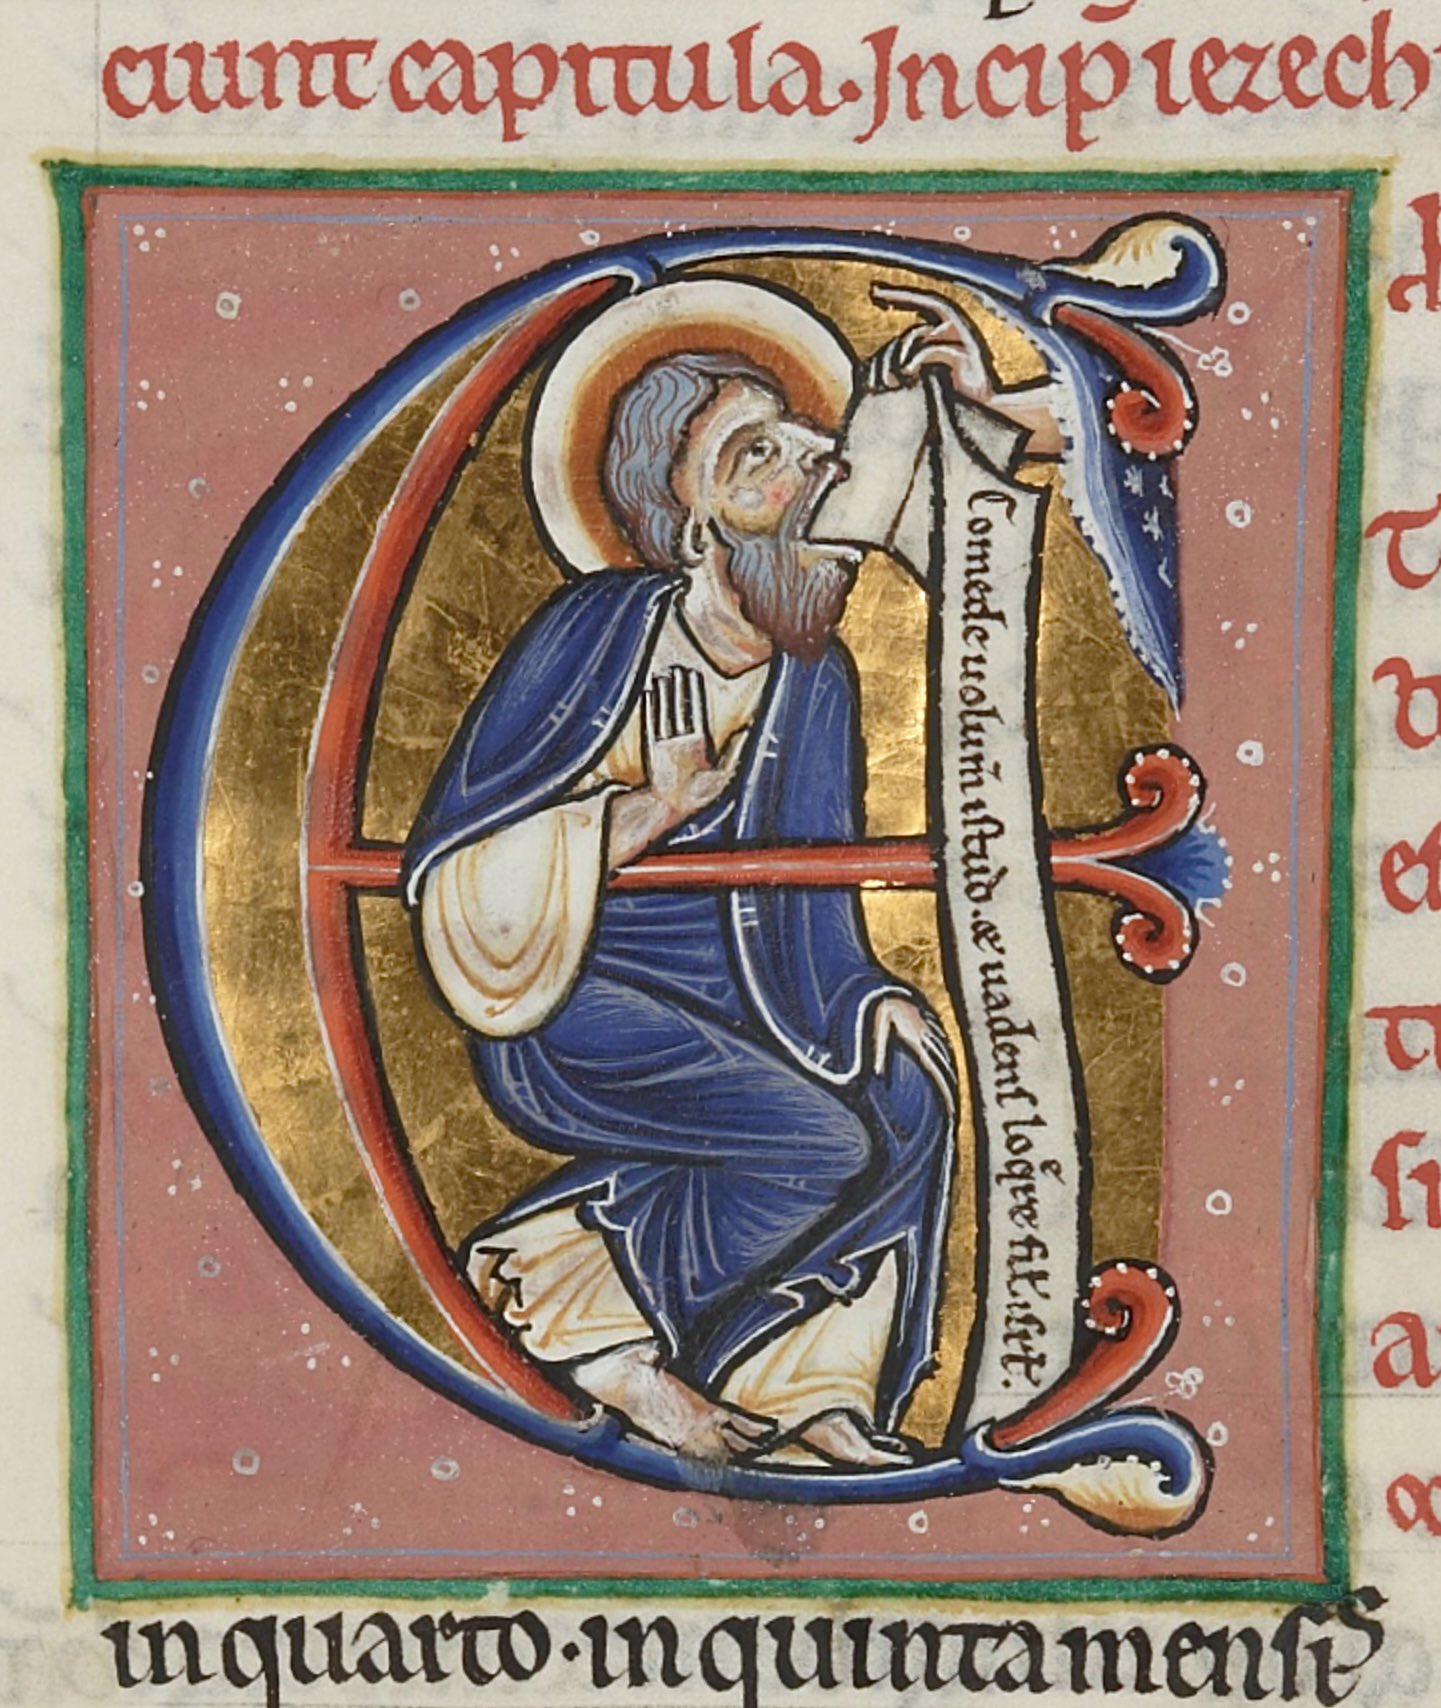 ciunt capitula. Incip̄ iezech
Comede uolum̄ istud. & uadens loq̄re fil' isrl.
in quarto. in quinta mensis